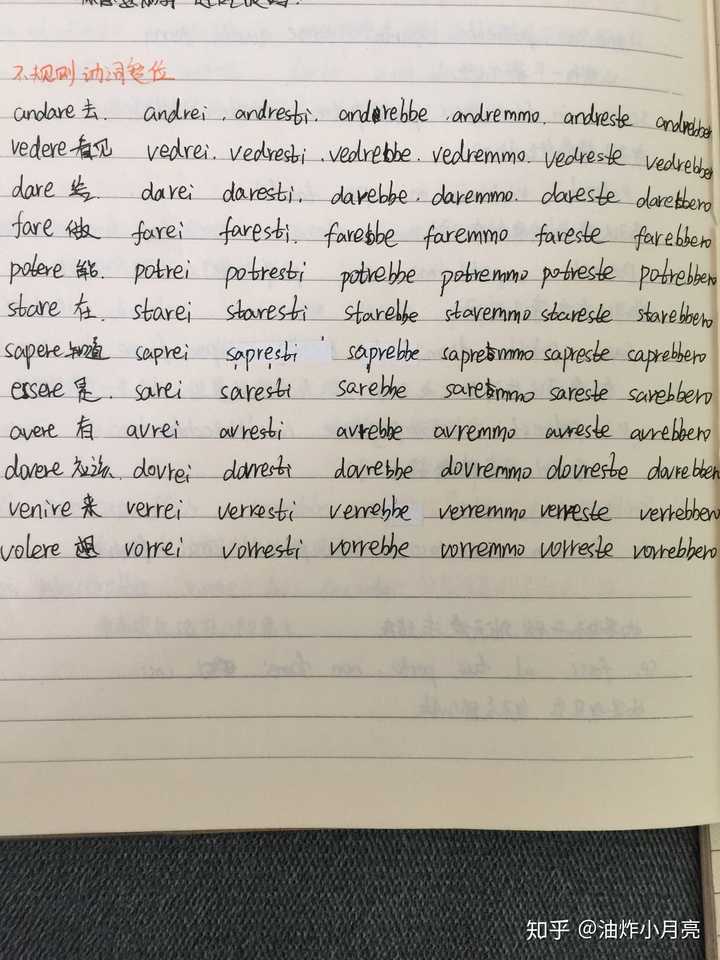 不规则动词变位
andare 去 andrei . andresti . andrebbe . andremmo . andreste andrebber
vedere 看见 vedrei . vedresti . vedrebbe . vedremmo . vedreste vedrebber
dare 给 darei daresti . darebbe . daremmo . dareste darebbero
fare 做 farei faresti . farebbe faremmo fareste farebbero
potere 能 . potrei potresti potrebbe potremmo potreste potrebbero
stare 在 . starei staresti starebbe staremmo stareste starebbero
sapere 知道 saprei sapresti saprebbe sapremmo sapreste saprebbero
essere 是 . sarei saresti sarebbe saremmo sareste sarebbero
avere 有 avrei avresti avrebbe avremmo avreste avrebbero
dovere 应该 . dovrei dovresti dovrebbe dovremmo dovreste dovrebber
venire 来 verrei verresti verrebbe verremmo verreste verrebbero
volere 想 vorrei vorresti vorrebbe vorremmo vorreste vorrebbero
知乎 @油炸小月亮